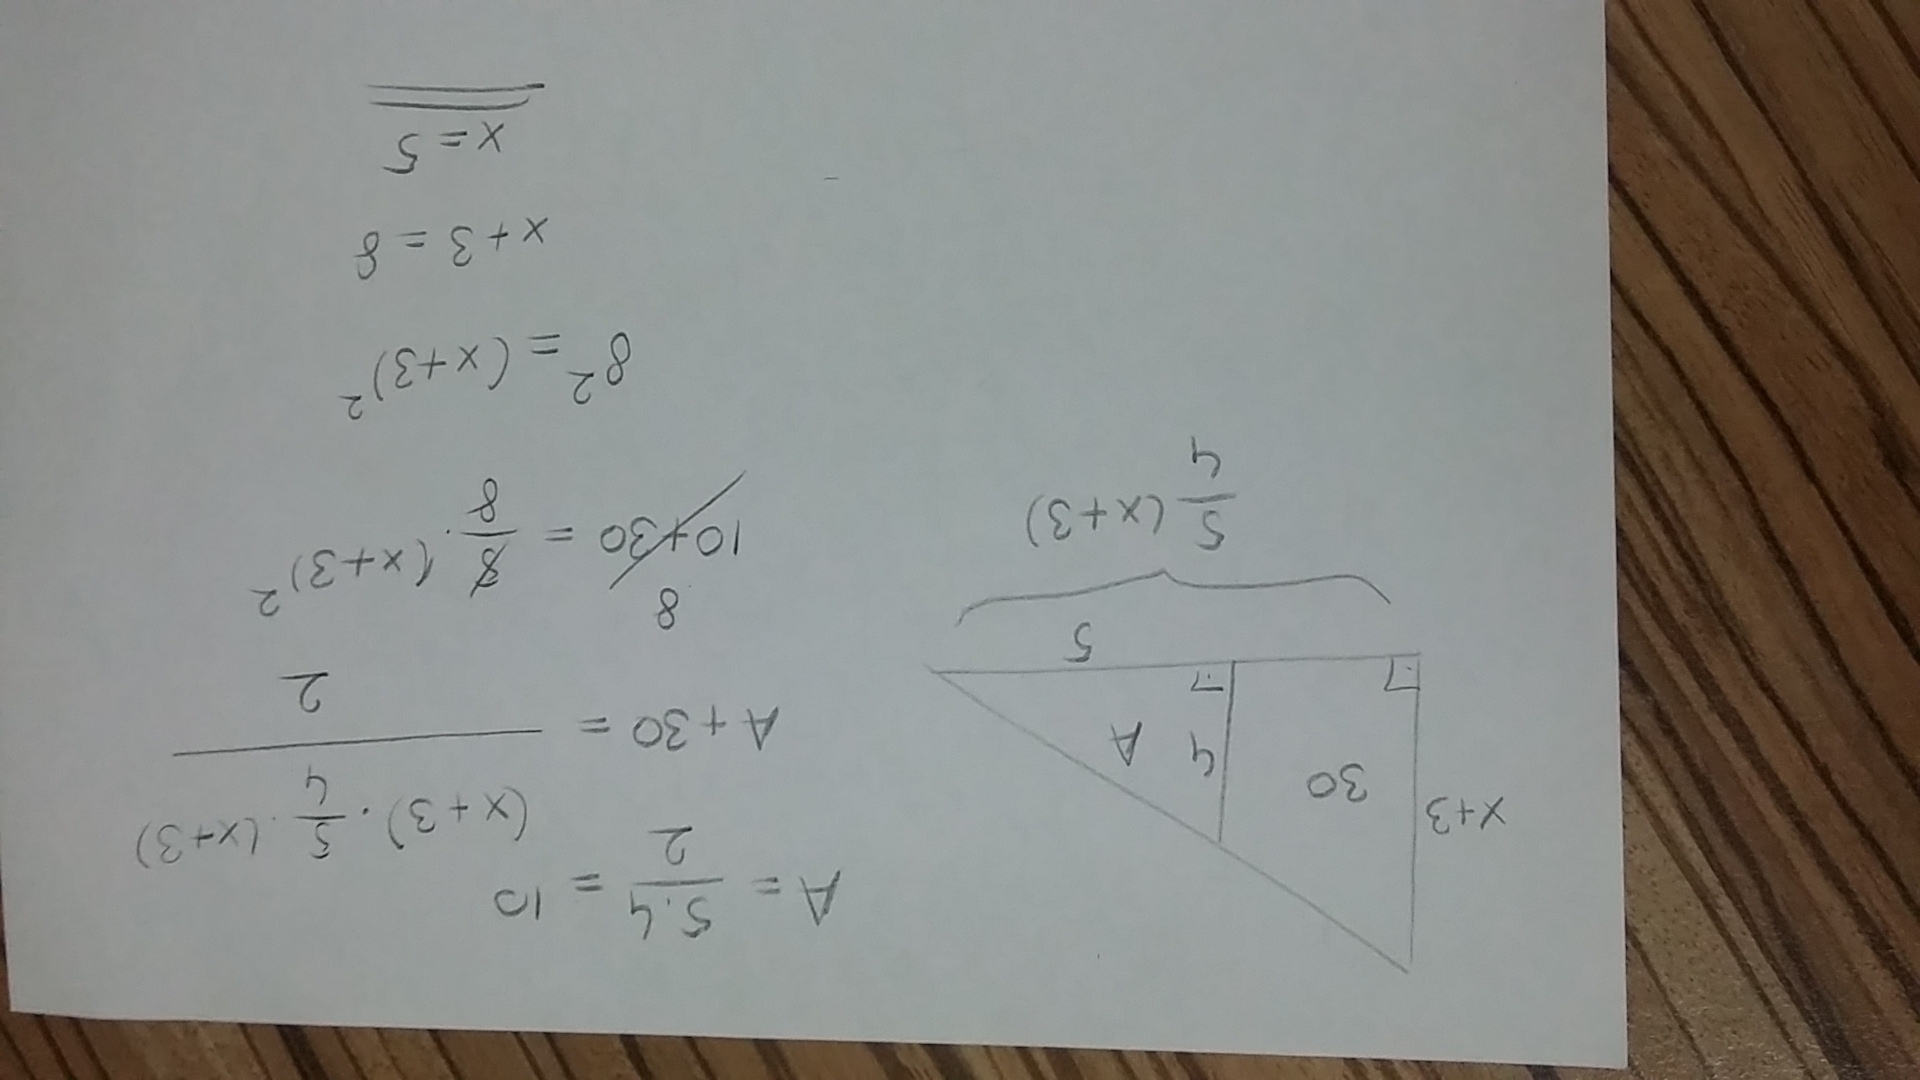 x+3
30
4
A
5
5/4 (x+3)
A = 5.4/2 = 10
A + 30 = (x+3) · 5/4 · (x+3) / 2
8
10+30 = 5/8 · (x+3)²
8² = (x+3)²
x+3 = 8
x = 5